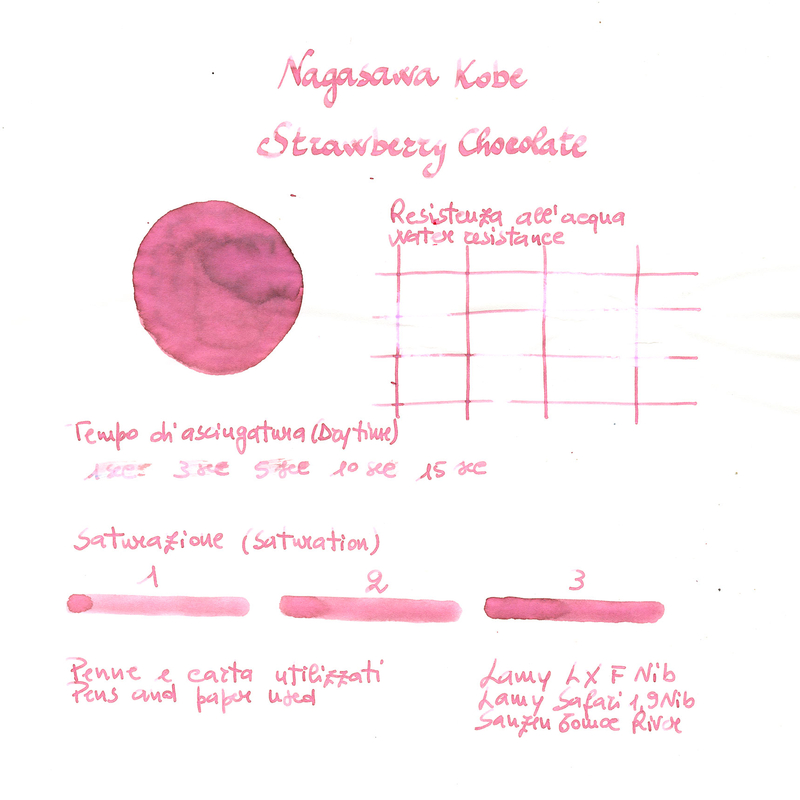 Nagasawa Kobe
Strawberry Chocolate
Resistenza all'acqua
Water resistance
Tempo di asciugatura (Dry time)
1 sec 3 sec 5 sec 10 sec 15 sec
Saturazione (Saturation)
1 2 3
Penne e carta utilizzati
Pens and paper used
Lamy LX F Nib
Lamy Safari 1,9 Nib
Sanzen Tomoe River